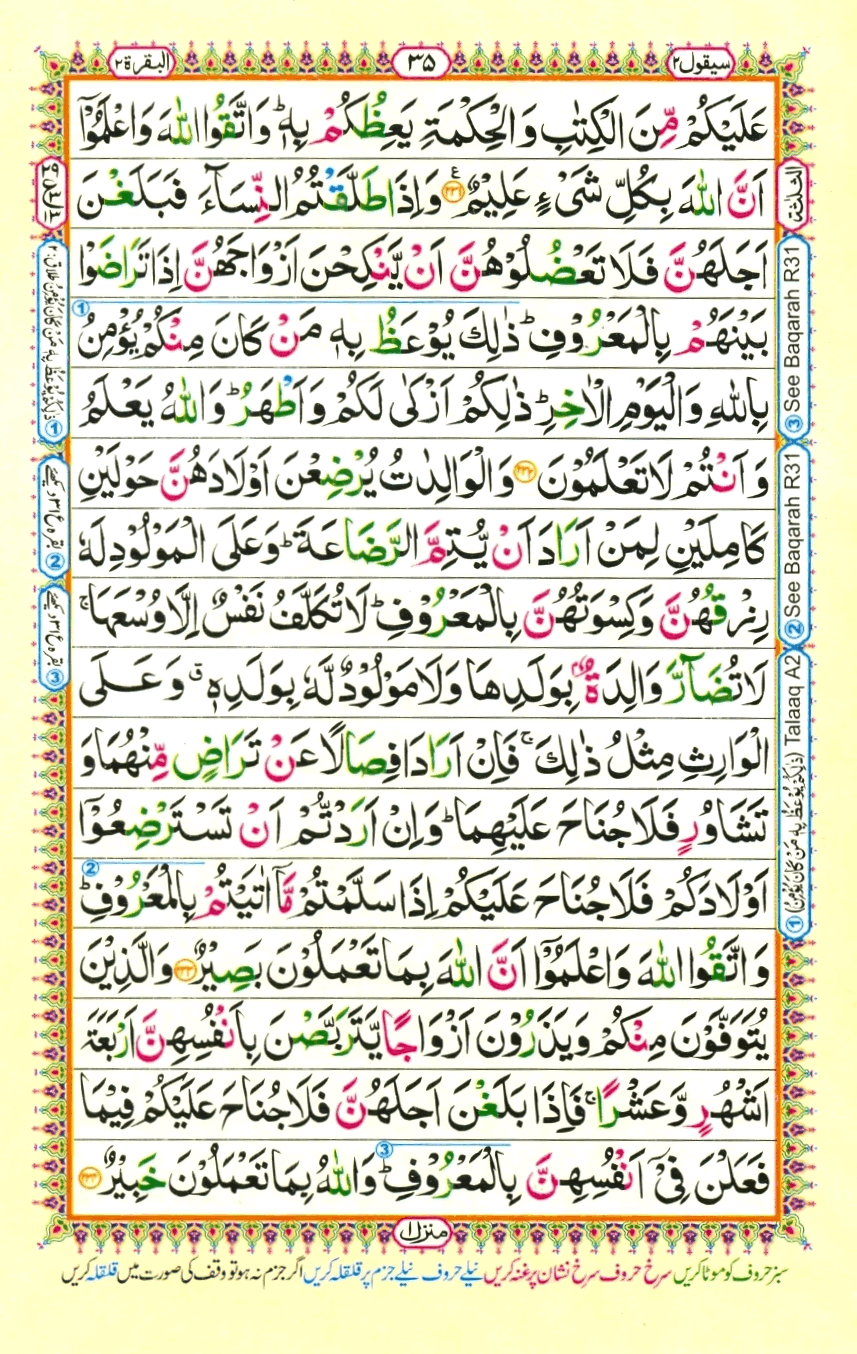 سیقول۲
۳۵
البقرة۲
عَلَيْكُمْ مِّنَ الْكِتٰبِ وَالْحِكْمَةِ يَعِظُكُمْ بِهٖ ؕ وَاتَّقُوا اللّٰهَ وَاعْلَمُوْۤا
اَنَّ اللّٰهَ بِكُلِّ شَیْءٍ عَلِيْمٌ ﴿۲۳۱﴾ ع وَاِذَا طَلَّقْتُمُ النِّسَآءَ فَبَلَغْنَ
اَجَلَهُنَّ فَلَا تَعْضُلُوْهُنَّ اَنْ يَّنْكِحْنَ اَزْوَاجَهُنَّ اِذَا تَرَاضَوْا
بَيْنَهُمْ بِالْمَعْرُوْفِ ؕ ذٰلِكَ يُوْعَظُ بِهٖ مَنْ كَانَ مِنْكُمْ يُؤْمِنُ
بِاللّٰهِ وَالْيَوْمِ الْاٰخِرِ ؕ ذٰلِكُمْ اَزْكٰى لَكُمْ وَاَطْهَرُ ؕ وَاللّٰهُ يَعْلَمُ
وَاَنْتُمْ لَا تَعْلَمُوْنَ ﴿۲۳۲﴾ وَالْوَالِدٰتُ يُرْضِعْنَ اَوْلَادَهُنَّ حَوْلَيْنِ
كَامِلَيْنِ لِمَنْ اَرَادَ اَنْ يُّتِمَّ الرَّضَاعَةَ ؕ وَعَلَى الْمَوْلُوْدِ لَهٗ
رِزْقُهُنَّ وَكِسْوَتُهُنَّ بِالْمَعْرُوْفِ ؕ لَا تُكَلَّفُ نَفْسٌ اِلَّا وُسْعَهَا ۚ
لَا تُضَآرَّ وَالِدَةٌۢ بِوَلَدِهَا وَلَا مَوْلُوْدٌ لَّهٗ بِوَلَدِهٖ ۗ وَعَلَى
الْوَارِثِ مِثْلُ ذٰلِكَ ۚ فَاِنْ اَرَادَا فِصَالًا عَنْ تَرَاضٍ مِّنْهُمَا وَ
تَشَاوُرٍ فَلَا جُنَاحَ عَلَيْهِمَا ؕ وَاِنْ اَرَدْتُّمْ اَنْ تَسْتَرْضِعُوْۤا
اَوْلَادَكُمْ فَلَا جُنَاحَ عَلَيْكُمْ اِذَا سَلَّمْتُمْ مَّاۤ اٰتَيْتُمْ بِالْمَعْرُوْفِ ؕ
وَاتَّقُوا اللّٰهَ وَاعْلَمُوْۤا اَنَّ اللّٰهَ بِمَا تَعْمَلُوْنَ بَصِيْرٌ ﴿۲۳۳﴾ وَالَّذِيْنَ
يُتَوَفَّوْنَ مِنْكُمْ وَيَذَرُوْنَ اَزْوَاجًا يَّتَرَبَّصْنَ بِاَنْفُسِهِنَّ اَرْبَعَةَ
اَشْهُرٍ وَّعَشْرًا ۚ فَاِذَا بَلَغْنَ اَجَلَهُنَّ فَلَا جُنَاحَ عَلَيْكُمْ فِيْمَا
فَعَلْنَ فِیْۤ اَنْفُسِهِنَّ بِالْمَعْرُوْفِ ؕ وَاللّٰهُ بِمَا تَعْمَلُوْنَ خَبِيْرٌ ﴿۲۳۴﴾
الثلثة
③ See Baqarah R31
② See Baqarah R31
① (ذٰلِكُمْ يُوْعَظُ بِهٖ مَنْ كَانَ يُؤْمِنُ) Talaaq A2
① ذٰلِكُمْ يُوْعَظُ بِهٖ مَنْ كَانَ يُؤْمِنُ طلاق ۲
② بقره ع ۳۱ دیکھئے
③ بقره ع ۳۱ دیکھئے
منزل ۱
سبز حروف کو موٹا کریں سرخ حروف سرخ نشان پر غنہ کریں نیلے حروف نیلے جزم پر قلقلہ کریں اگر جزم نہ ہو تو وقف کی صورت میں قلقلہ کریں